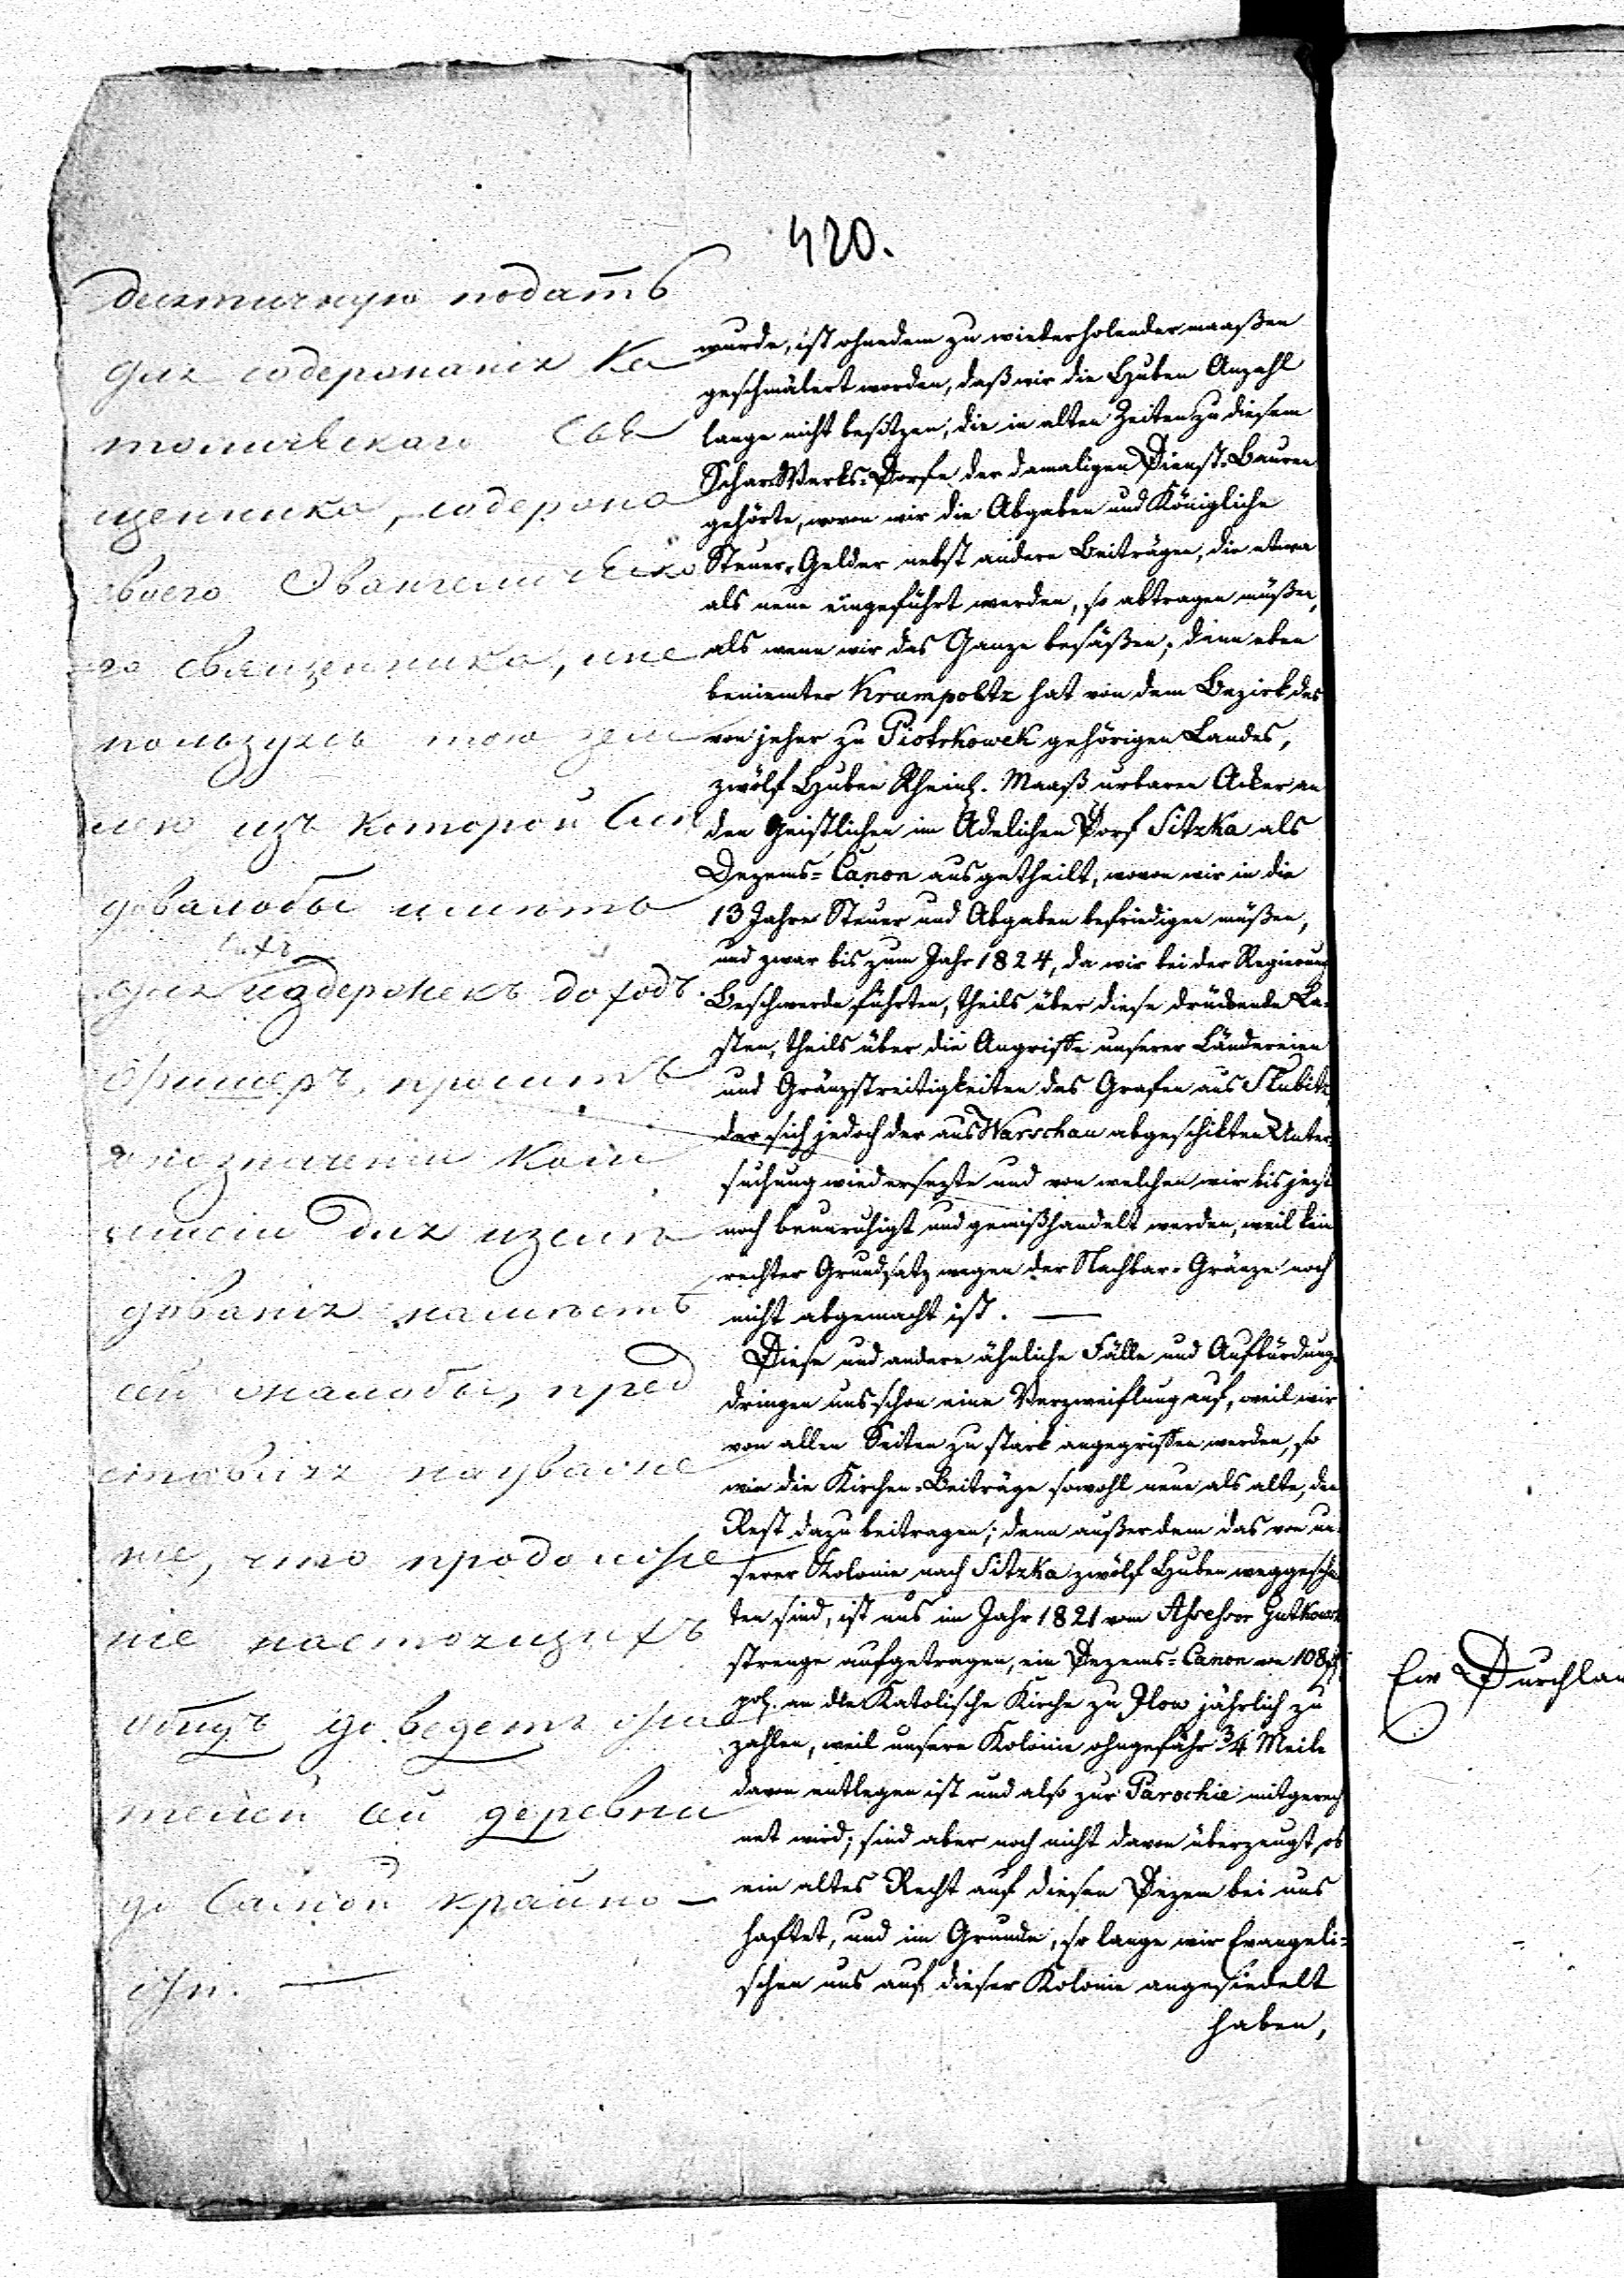 420.
десятичную подать
для содержанія Ка
толическаго Свя
щенника, содержа
своего Евангелическа
го священника, и не
пользуясь тою зем
лею изъ которой Слѣ
довалобы имѣть
для сихъ издержекъ доходъ.
Фишеръ, проситъ
о назначеніи Коми
миссіи для изслѣ
дованія на мѣстѣ
сей жалобы, пред
ставляя на уваже
ніе, что продолже
ніе настоящихъ
обидъ доведетъ жи
телей сей деревни
до Самой крайно-
сти. —
wurde, ist ohnedem zu wiederholendermaaßen
geschmälert worden, daß wir die Huben Anzahl
lange nicht besitzen, die in alten Zeiten zu diesem
ScharWerks-Dorfe der damaligen Dienst-Bauren
gehörte, wovon wir die Abgaben und Königliche
Steuer-Gelder nebst andern Beiträgen, die etwa
als neue eingeführt werden, so abtragen müßen,
als wenn wir das Ganze besäßen; denn eben
beniemter Krampoltz hat von dem Bezirk des
von jeher zu Piotrkowek gehörigen Landes,
zwölf Huben Rheinl. Maaß urbaren Acker an
den Geistlichen im Adelichen Dorf Sitzka als
Dezems-Canon ausgetheilt, wovon wir in die
13 Jahre Steuer und Abgaben befriedigen müßen,
und zwar bis zum Jahr 1824, da wir bei der Regierung
Beschwerde führten, theils über diese drückende La-
sten, theils über die Angriffe unserer Ländereien
und Gränzstreitigkeiten des Grafen aus Slubitz,
der sich jedoch der aus Warschau abgeschikten Unter-
suchung wiedersezte und von welchen wir bis jezt
noch beunruhigt und gemißhandelt werden, weil kein
rechter Grundsatz wegen der Nachbar-Gränze noch
nicht abgemacht ist. —
Diese und andere ähnliche Fälle und Aufbürdung
dringen uns schon eine Verzweiflung auf, weil wir
von allen Seiten zu stark angegriffen werden, so
wie die Kirchen-Beiträge sowohl neue als alte, den
Rest dazu beitragen; denn außer dem das von un-
serer Kolonie nach Sitzka zwölf Huben weggeschni
ten sind, ist uns im Jahr 1821 vom Assessor Gutkowsk
strenge aufgetragen, ein Dezems-Canon von 108 fl
pol. an die Katolische Kirche zu Ilow jährlich zu
zahlen, weil unsere Kolonie ohngefähr 3/4 Meile
davon entlegen ist und also zur Parochie mitgerech
net wird; sind aber noch nicht davon überzeugt, ob
ein altes Recht auf diesen Dezem bei uns
haftet, und im Grunde, so lange wir Evangeli-
schen uns auf dieser Kolonie angesiedelt
haben,
Ew Durchlau